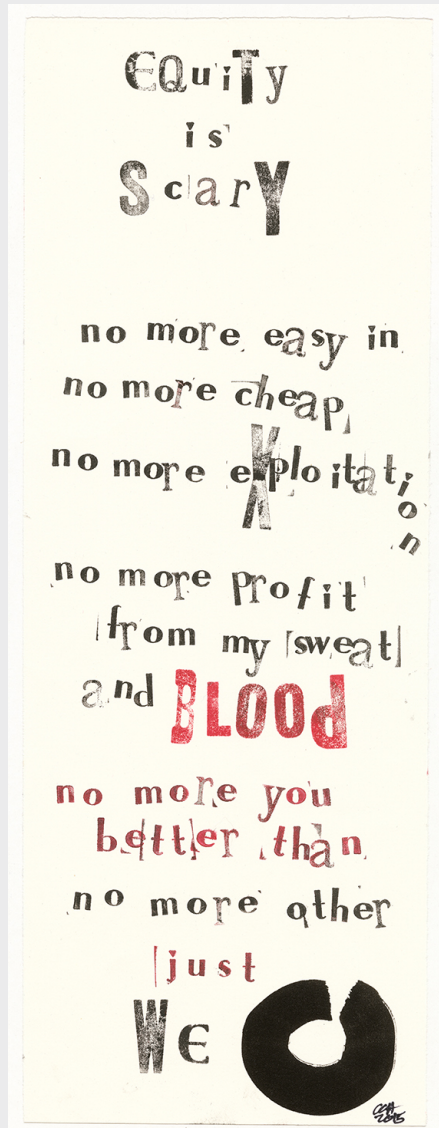 EQuiTy
is
ScarY
no more easy in
no more cheap
no more eXploitation
no more profit
from my sweat
and BLOOd
no more you
better than
no more other
just
WE
CCH
2015